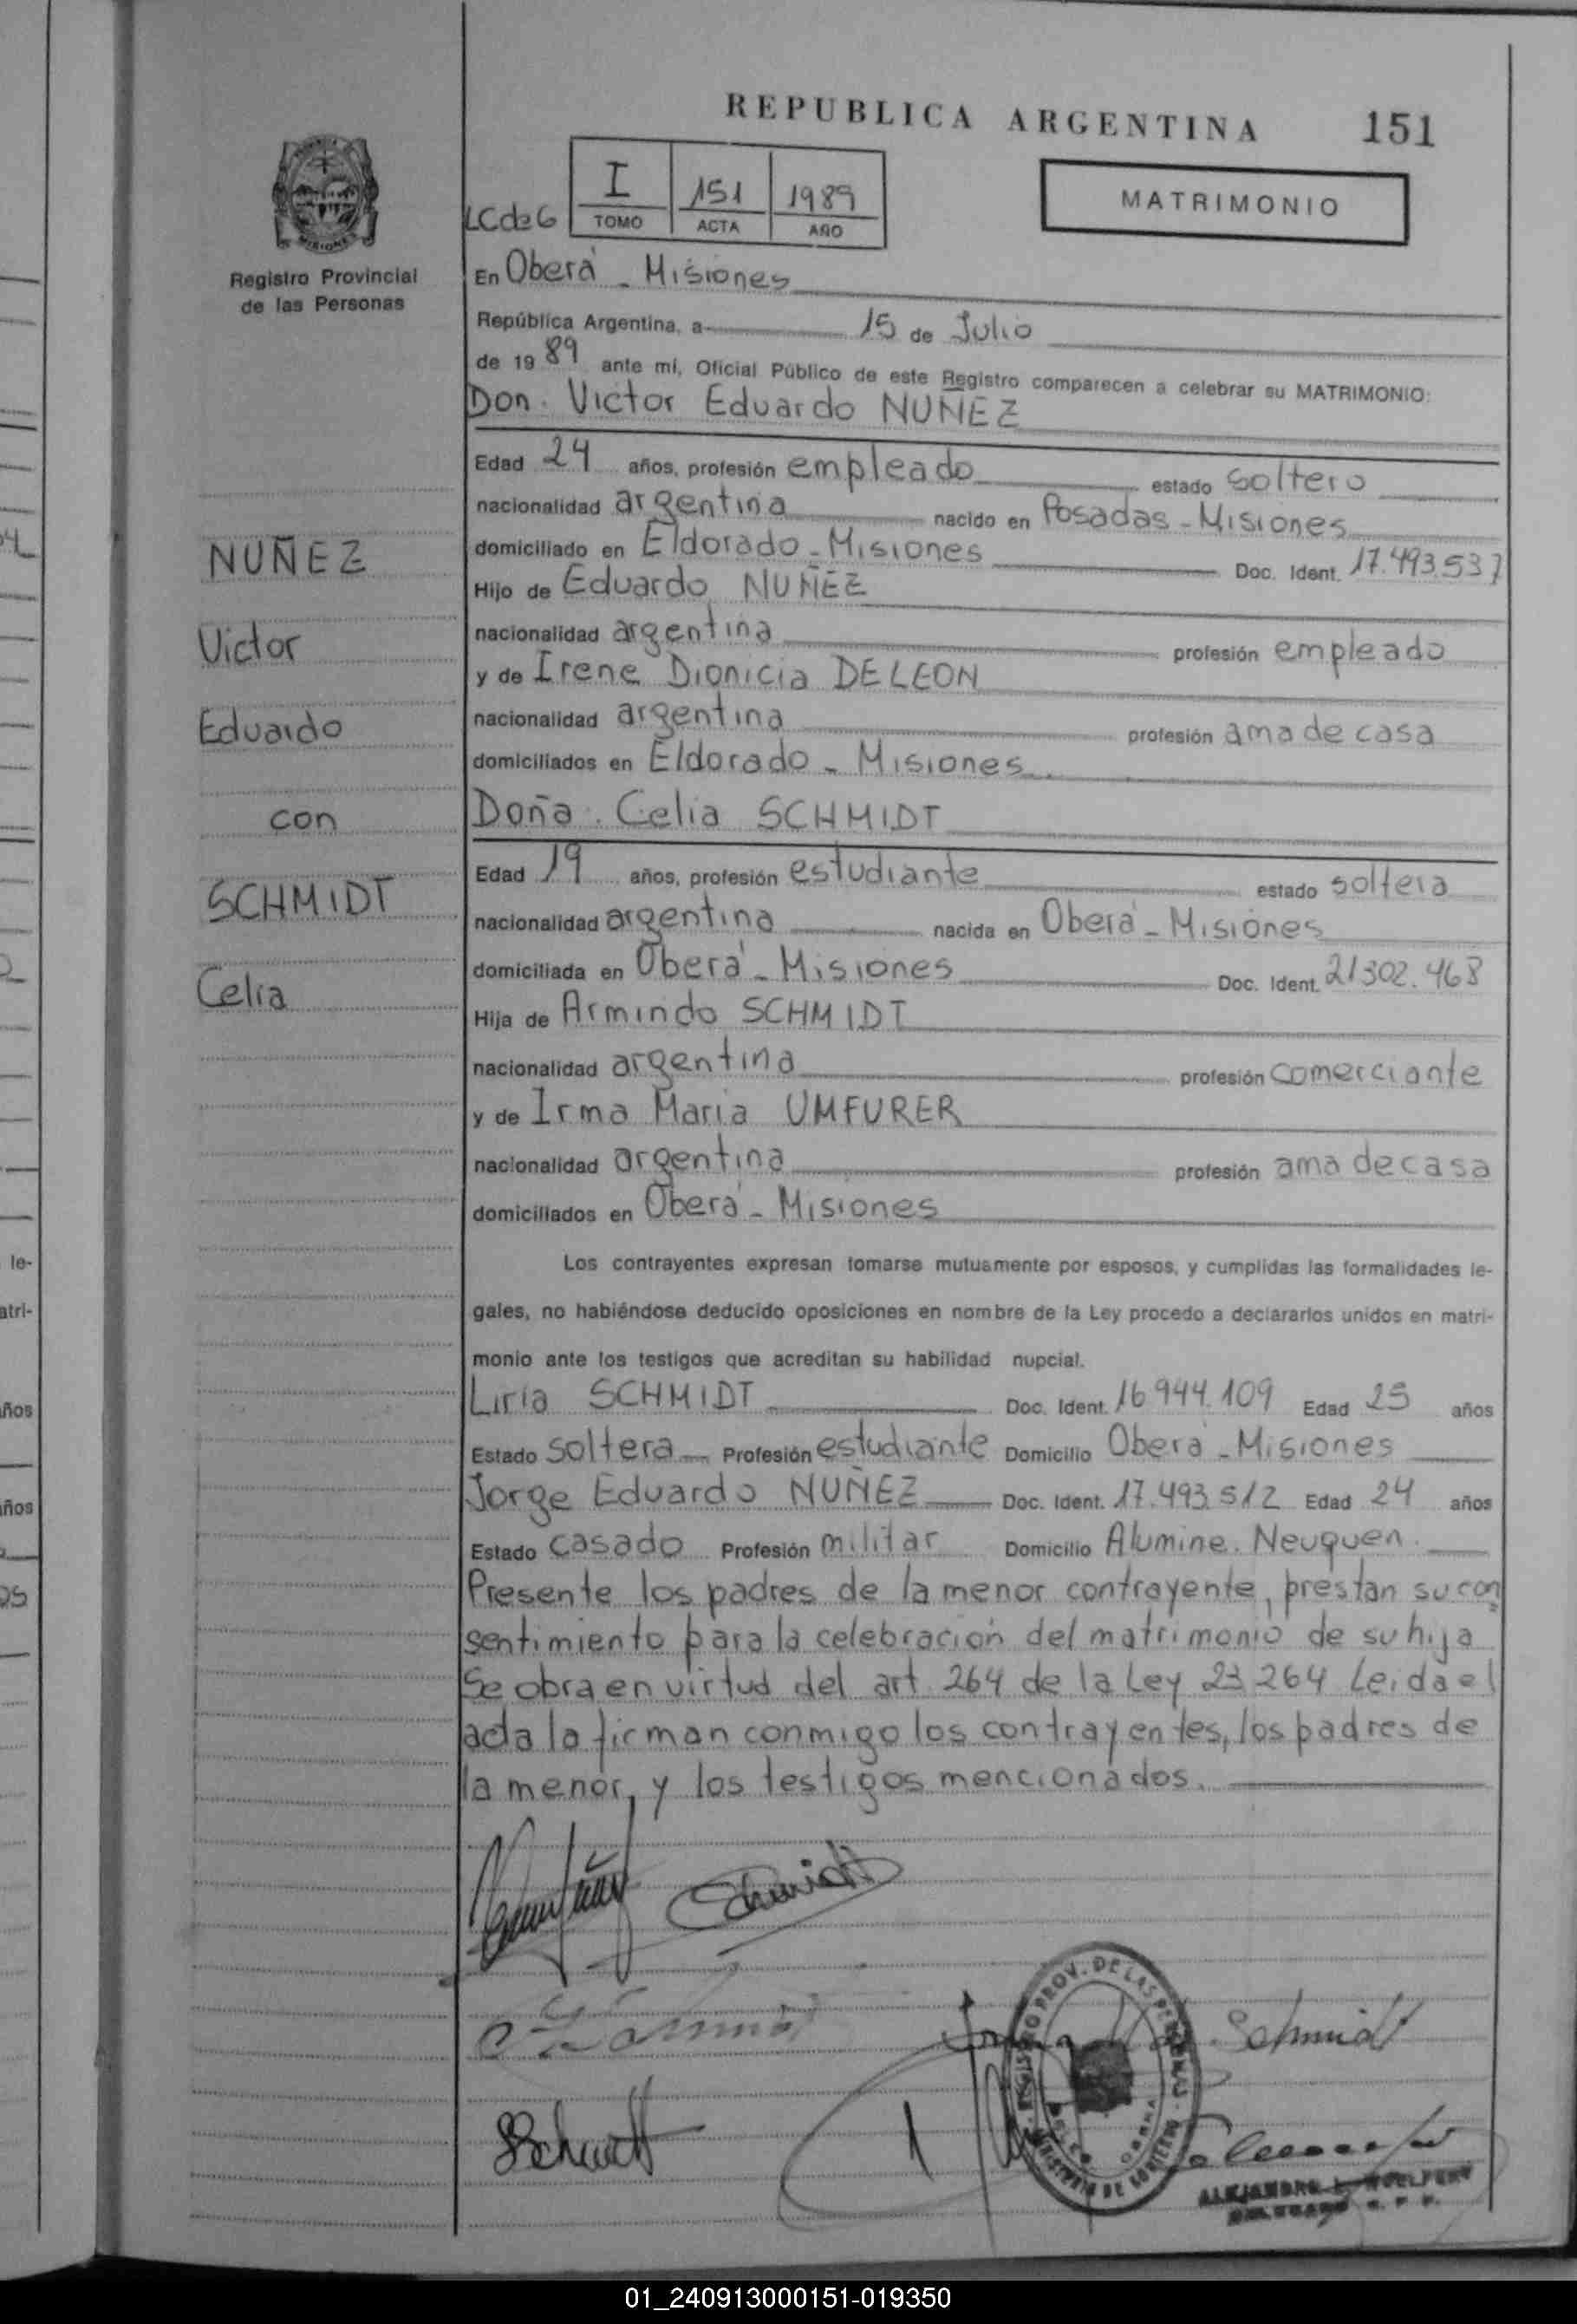 REPUBLICA ARGENTINA 151
LC de G
I TOMO 151 ACTA 1989 AÑO
MATRIMONIO
MISIONES
Registro Provincial
de las Personas
En Oberá - Misiones
República Argentina, a 15 de Julio
de 19 89 ante mí, Oficial Público de este Registro comparecen a celebrar su MATRIMONIO:
Don. Victor Eduardo NUÑEZ
Edad 24 años, profesión empleado estado soltero
nacionalidad argentina nacido en Posadas - Misiones
domiciliado en Eldorado - Misiones Doc. Ident. 17.493.537
Hijo de Eduardo NUÑEZ
nacionalidad argentina profesión empleado
y de Irene Dionicia DE LEON
nacionalidad argentina profesión ama de casa
domiciliados en Eldorado - Misiones
Doña. Celia SCHMIDT
Edad 19 años, profesión estudiante estado soltera
nacionalidad argentina nacida en Oberá - Misiones
domiciliada en Oberá - Misiones Doc. Ident. 21302.468
Hija de Armindo SCHMIDT
nacionalidad argentina profesión comerciante
y de Irma Maria UMFURER
nacionalidad argentina profesión ama de casa
domiciliados en Oberá - Misiones
NUÑEZ
Victor
Eduardo
con
SCHMIDT
Celia
Los contrayentes expresan tomarse mutuamente por esposos, y cumplidas las formalidades le-
gales, no habiéndose deducido oposiciones en nombre de la Ley procedo a declararlos unidos en matri-
monio ante los testigos que acreditan su habilidad nupcial.
Liria SCHMIDT Doc. Ident. 16 944.109 Edad 25 años
Estado soltera Profesión estudiante Domicilio Oberá - Misiones
Jorge Eduardo NUÑEZ Doc. Ident. 17.493.512 Edad 24 años
Estado casado Profesión militar Domicilio Alumine. Neuquen.
Presente los padres de la menor contrayente, prestan su con
sentimiento para la celebración del matrimonio de su hija
Se obra en virtud del art. 264 de la Ley 23 264 Leida el
acta la firman conmigo los contrayentes, los padres de
la menor, y los testigos mencionados.
Schmidt
Schmidt
Schmidt
REGISTRO PROV. DE LAS PERSONAS
MINISTERIO DE GOBIERNO
ALEJANDRO
le-
atri-
ños
ños
01_240913000151-019350